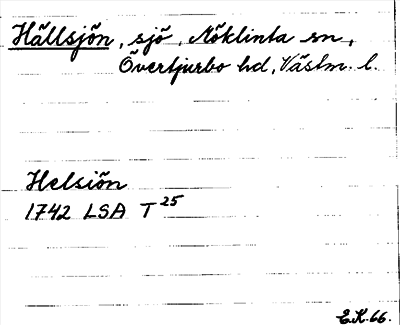 Hällsjön, sjö, Nöklinta sn,
Övertjurbo hd, Västm. l.
Helsiön
1742 LSA T25
E.K. 66.